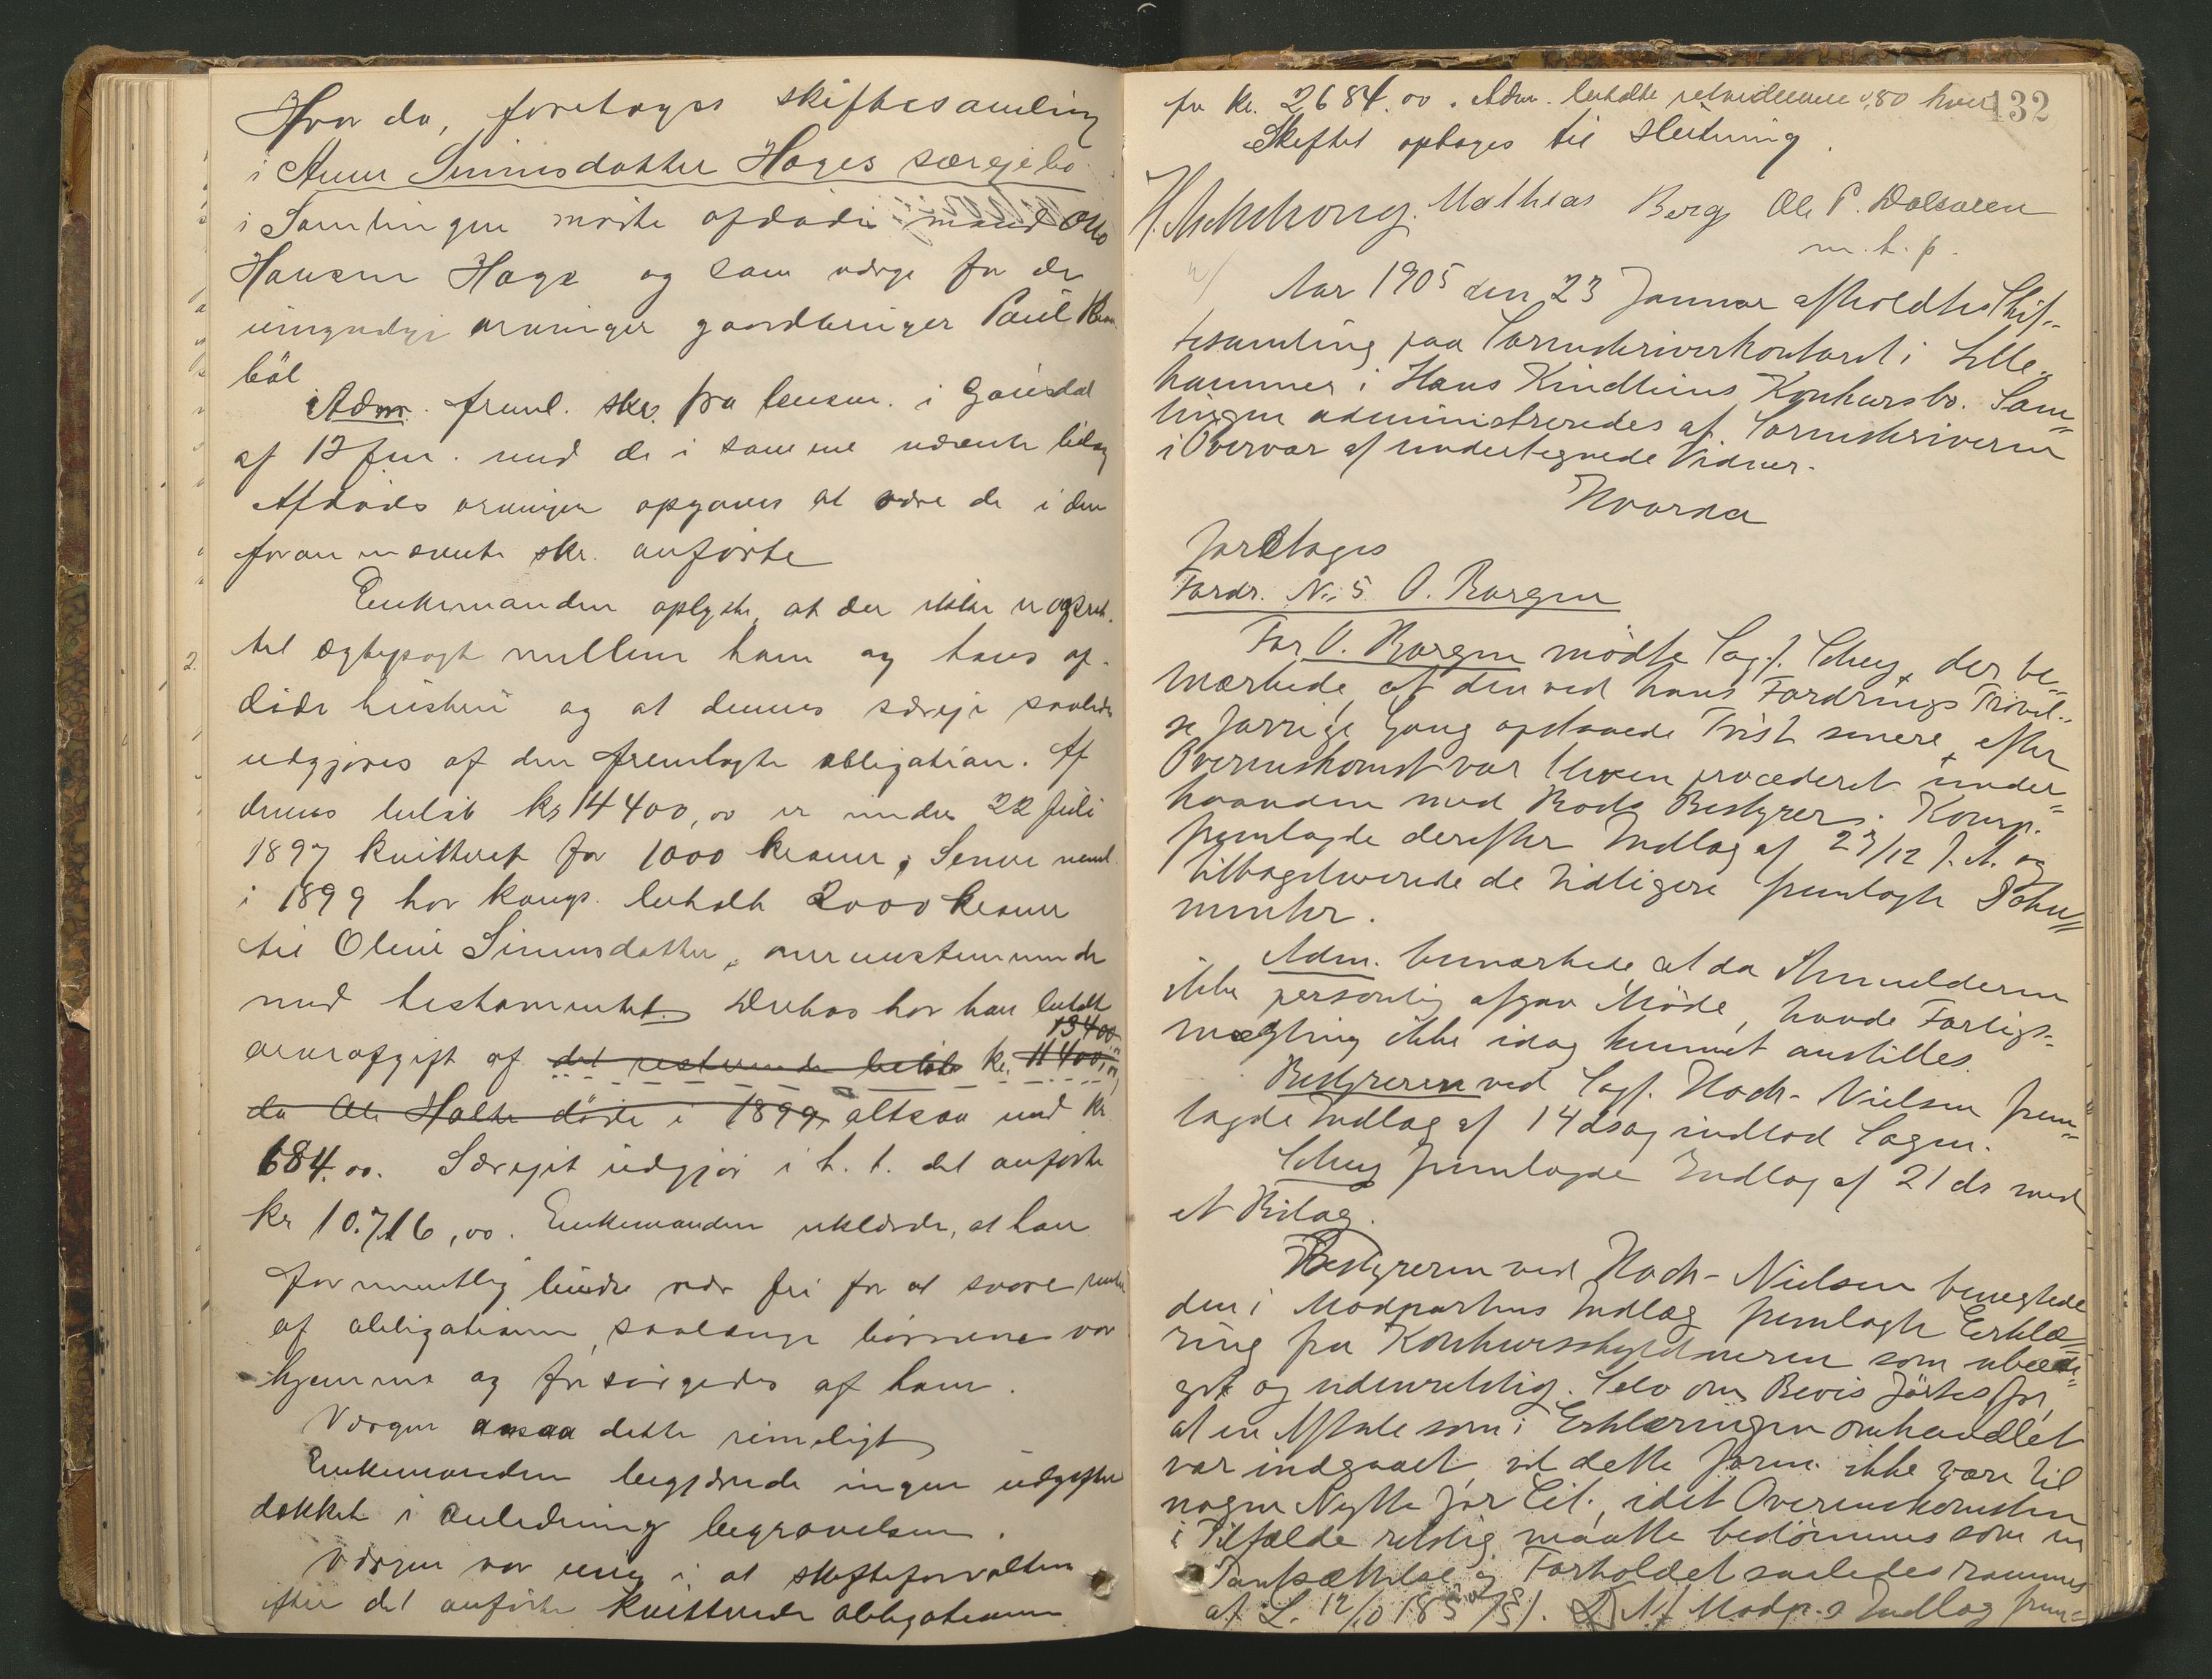 Hvor da, foretoges skiftesamling
i Anne Simensdatter Hages særejebo
i Samlingen mødte afdødes mand Otto
Hansen Hage og som værge for de
umyndige arvinger gaardbruger Paul
böl
Adm. freml. skr. fra lensm. i Gausdal
af 12 jan. med de i samme nævnte bilag
Afdødes arvinger opgaves at være de i den
foran nævnte skr. anførte
Enkemanden oplyste, at der ikke er opret-
tet ægtepagt mellem ham og hans af-
døde hustru og at dennes særeje saaledes
udgjøres af den fremlagte obligation. Af
dennes beløb kr 14400,00 er under 22 juli
1897 kvitteret for 1000 kroner, Senere neml.
i 1899 har komp. betalt 2000 kroner
til Oline Simensdatter, overensstemmende
med testamentet. Derhos har han betalt
13400
arveafgift af det resterende beløb kr. 11400,00
da Ole Holte døde i 1899, altsaa med kr
684.00. Særejet udgjør i h. t. det anførte
kr 10.716,00. Enkemanden erklærede, at han
formentlig burde være fri for at svare renter
af obligationen saalænge börnene var
hjemme og forsørgedes af ham.
Værgen ansaa dette rimeligt
Enkemanden begjærede ingen udgifter
dækket i anledning begravelsen.
Værgen var enig i at skifteforvalteren
efter det anførte kvitterede obligationen
for kr. 2684.00. Adm. betalte retsvidnerne 0,80 hver
132
Skiftet optages til slutning.
Mathias Berg Ole P. Dalsveen
m. t. p.
Aar 1905 den 23 Januar afholdtes Skif-
tesamling paa Sorenskriverkontoret i Lille-
hammer i Hans Kindlius Konkursbo. Sam-
lingen administreredes af Sorenskriveren
i Overvær af undertegnede Vidner.
Hvorda
foretoges
Fordr. No 5 O. Borgen
For O. Borgen mødte Sagf. Schey, der be-
mærkede, at den ved hans Fordrings Prøvel-
se forrige Gang opstaaede Tvist senere efter
Overenskomst var bleven procederet under-
haanden med Boets Bestyrer. Komp.
fremlagde derefter Indlæg af 23/12 f. A. og
tilbageleverede de tidligere fremlagte Doku-
menter.
Adm. bemærkede at da Anmelderen
ikke personlig afgav Møde, havde Forligs-
mægling ikke idag kunnet anstilles.
Bestyreren ved Sagf. Koch-Nielsen frem-
lagde Indlæg af 14 ds og indlod Sagen.
Schey fremlagde Indlæg af 21 ds med
et Bilag.
Bestyreren ved Koch-Nielsen benegtede
den i Modpartens Indlæg fremlagte Erklæ-
ring fra Konkursskyldneren som ubeedi-
get og udenretslig. Selv om Bevis førtes for,
at en Aftale som i Erklæringen omhandlet
var indgaaet, vil dette form. ikke være til
nogen Nytte for Cit., idet Overenskomsten
i Tilfælde retslig maatte bedømmes som en
Pantsættelse og Forholdet saaledes rammes
af L. 12/10 1857 § 1. Af Modp.s Indlæg frem-